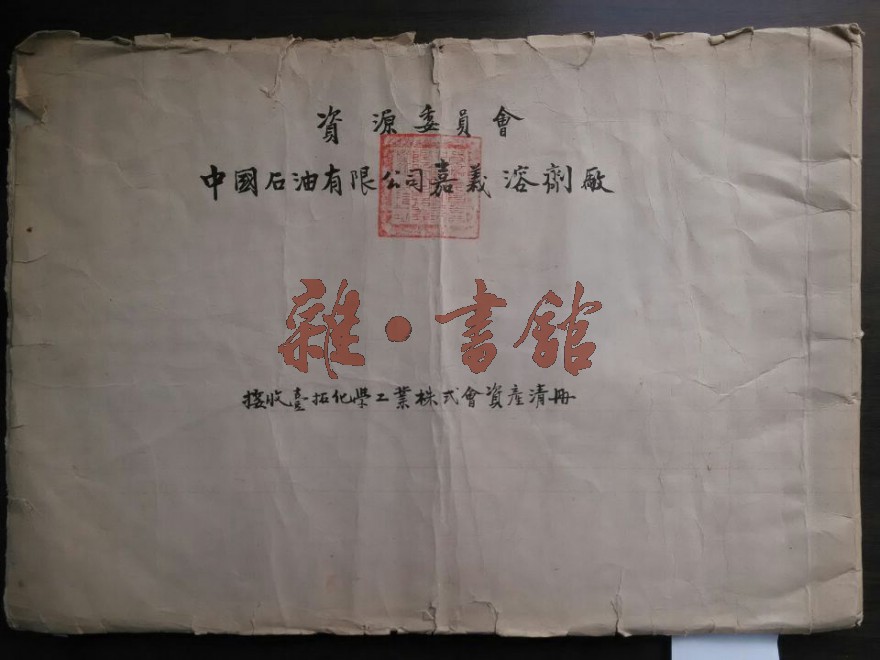 資源委員會
中國石油有限公司嘉義溶劑廠
雜·書館
接收臺拓化學工業株式會資產清冊